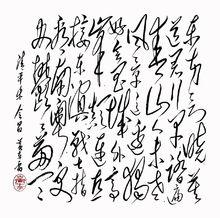 东方欲晓莫
道君行早踏遍
青山人未老
风景这边独
好会昌城外高
峰颠连直
接东溟战士指
看南粤更加
郁郁葱葱
清平乐会昌